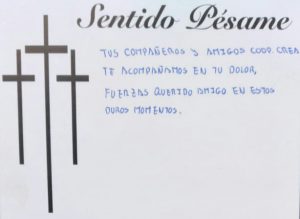 Sentido Pésame
TUS COMPAÑEROS Y AMIGOS COOP. CREA
TE ACOMPAÑAMOS EN TU DOLOR,
FUERZAS QUERIDO AMIGO EN ESTOS
DUROS MOMENTOS.